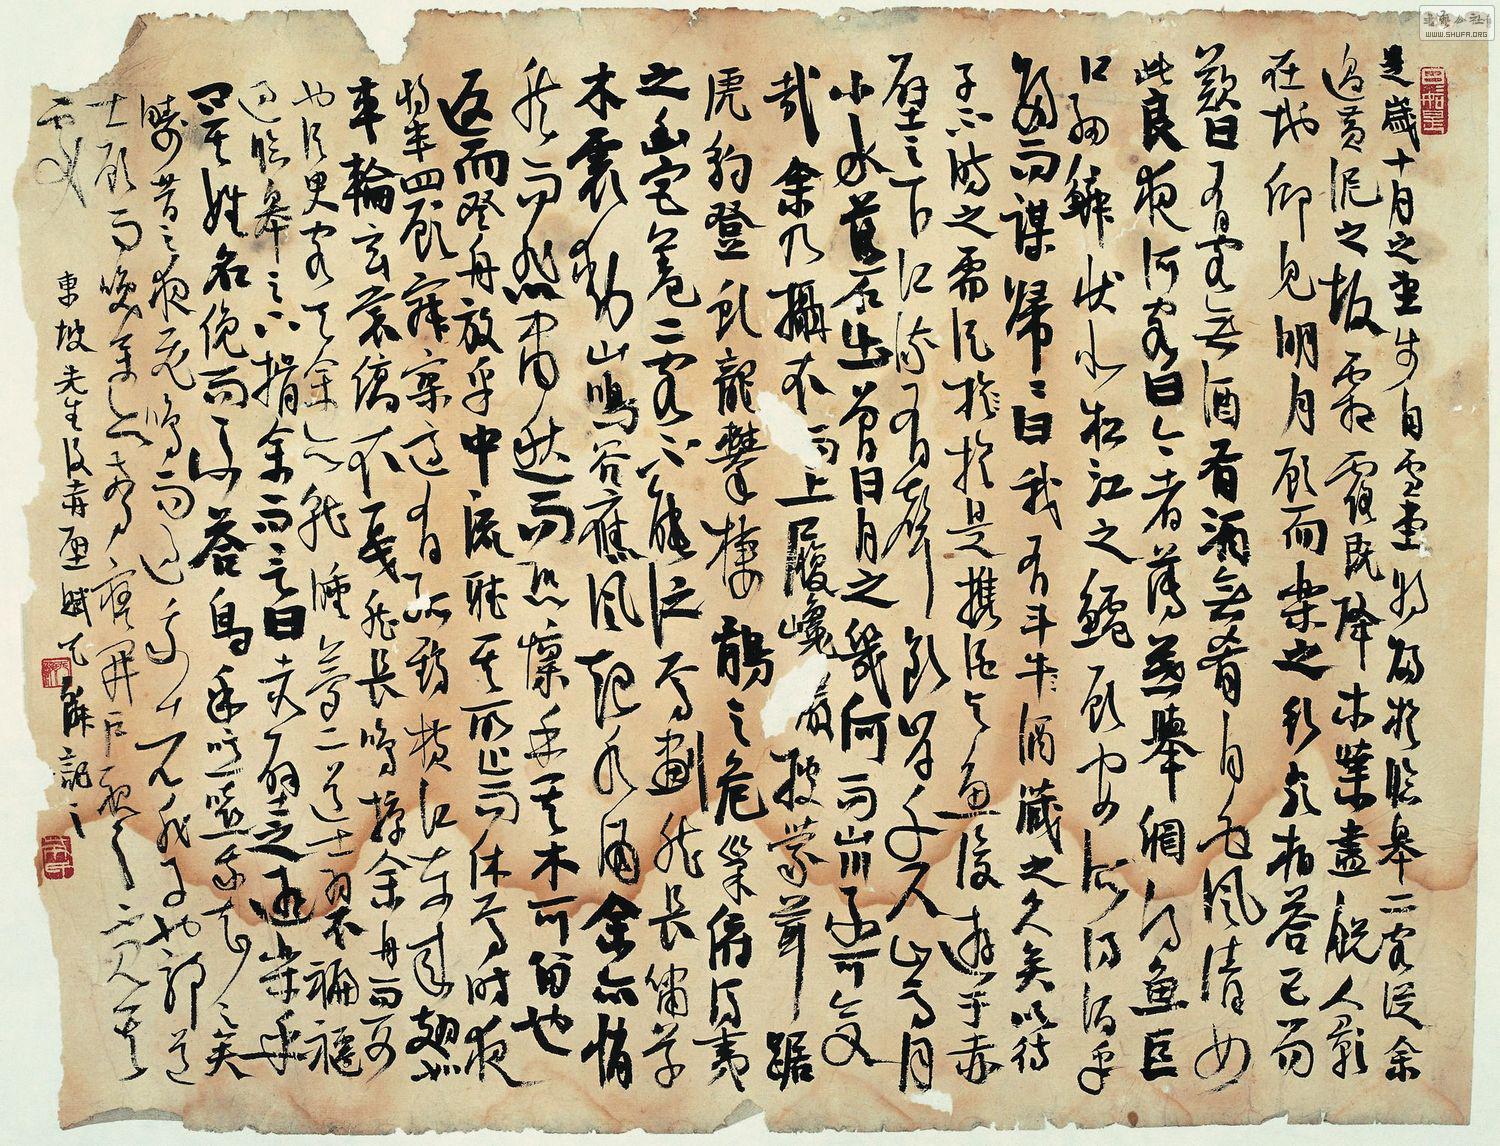 是歲十月之望步自雪堂將歸於臨皋二客從余
過黃泥之坂霜露既降木葉盡脫人影
在地仰見明月顧而樂之行歌相答已而
歎曰有客無酒有酒無肴月白風清如
此良夜何客曰今者薄暮舉網得魚巨
口細鱗狀似松江之鱸顧安所得酒乎
歸而謀婦婦曰我有斗酒藏之久矣以待
子不時之需於是攜酒與魚復遊于赤
壁之下江流有聲斷岸千尺山高月
小水落石出曾日月之幾何而山川不可復
哉余乃攝衣而上履巉巖披蒙茸踞
虎豹登虬龍攀棲鶻之危巢俯馮夷
之幽宮蓋二客不能從焉劃然長嘯草
木震動山鳴谷應風起水涌余亦悄
然而悲肅然而恐凜乎其不可留也
返而登舟放乎中流聽其所止而休焉時夜
將半四顧寂寥適有孤鶴橫江東來翅如
車輪玄裳縞衣戛然長鳴掠余舟而西
也須臾客去余亦就睡夢二道士羽衣蹁躚
過臨皋之下揖余而言曰赤壁之遊樂乎
問其姓名俛而不答烏乎噫嘻我知之矣
疇昔之夜飛鳴而過我者非子也耶道
士顧而笑余亦驚寤開戶視之不見其
處
東坡先生後赤壁賦 記之
WWW.SHUFA.ORG